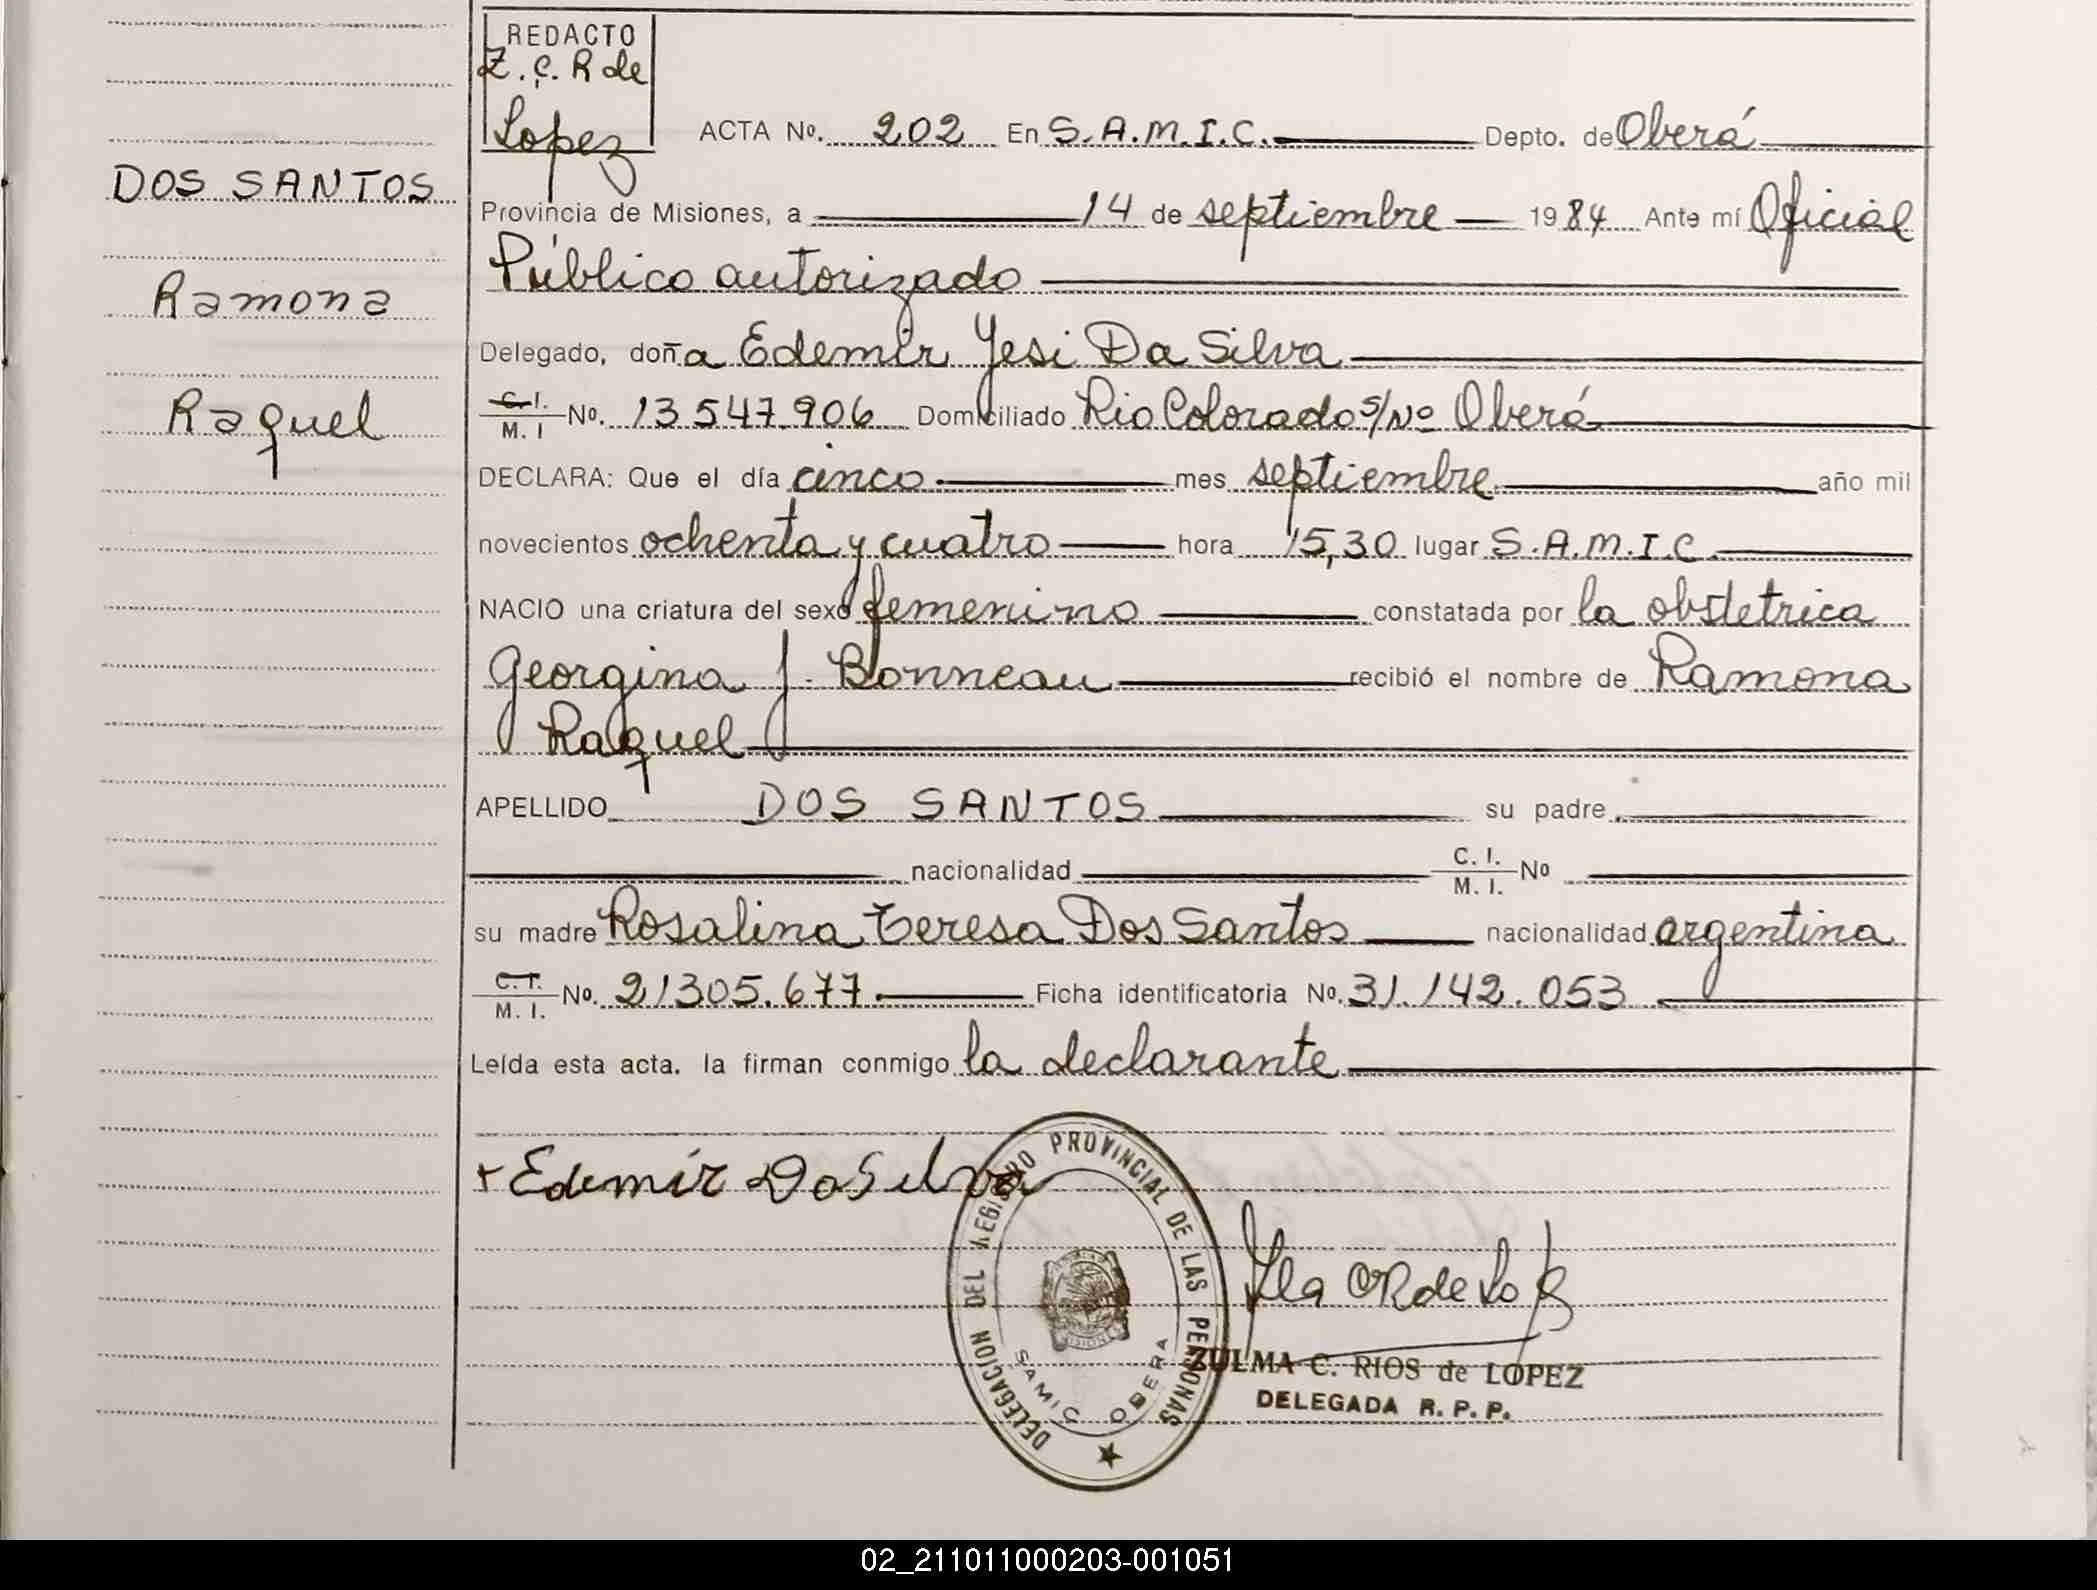 REDACTO
Z. C. R de
Lopez
ACTA No. 202 En S.A.M.I.C. Depto. de Oberá
DOS SANTOS
Provincia de Misiones, a 14 de septiembre 1984 Ante mí Oficial
Público autorizado
Ramona
Delegado, doña Edemir Yesi Da Silva
Raquel
C.I. M. I No. 13547.906 Domiciliado Rio Colorado s/No Oberá
DECLARA: Que el día cinco mes septiembre año mil
novecientos ochenta y cuatro hora 15,30 lugar S.A.M.I.C.
NACIO una criatura del sexo femenino constatada por la obstetrica
Georgina J. Bonneau recibió el nombre de Ramona
Raquel
APELLIDO DOS SANTOS su padre
nacionalidad C. I. M. I. No
su madre Rosalina Teresa Dos Santos nacionalidad argentina
C.I. M. I. No. 21305.677 Ficha identificatoria No. 31.142.053
Leída esta acta. la firman conmigo la declarante
Edemir Da Silva
DELEGACION DEL REGISTRO PROVINCIAL DE LAS PERSONAS
SAMIC OBERA
MISIONES
ZULMA C. RIOS de LOPEZ
DELEGADA R. P. P.
02_211011000203-001051